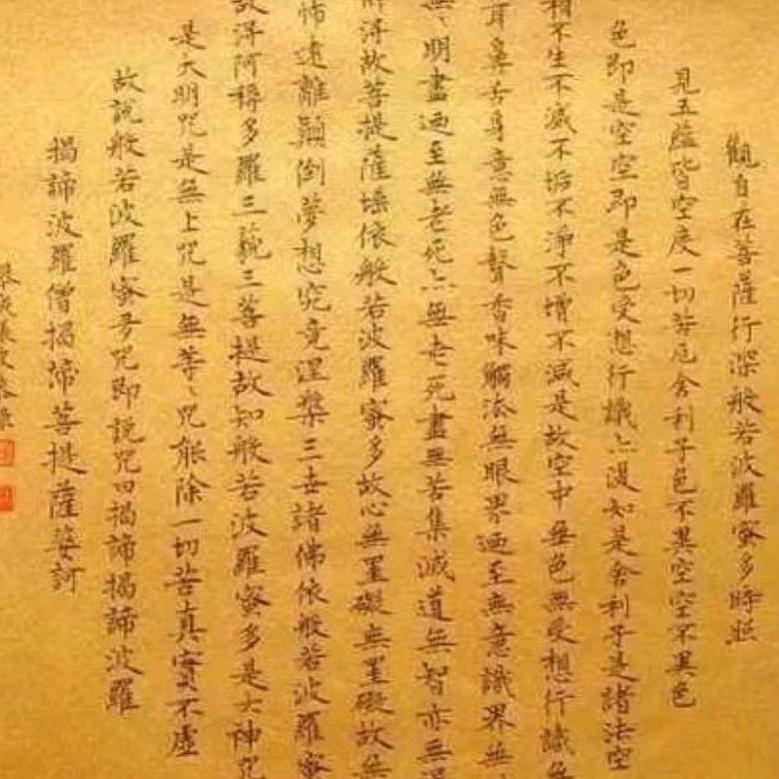 觀自在菩薩行深般若波羅蜜多時照
見五蘊皆空度一切苦厄舍利子色不異空空不異色
色即是空空即是色受想行識亦復如是舍利子是諸法空
相不生不滅不垢不淨不增不減是故空中無色無受想行識無
耳鼻舌身意無色聲香味觸法無眼界迺至無意識界無
無明盡迺至無老死亦無老死盡無苦集滅道無智亦無得
故菩提薩埵依般若波羅蜜多故心無罣礙無罣礙故無
怖遠離顛倒夢想究竟涅槃三世諸佛依般若波羅蜜
故得阿耨多羅三藐三菩提故知般若波羅蜜多是大神咒
是大明咒是無上咒是無等〻咒能除一切苦真實不虛
故說般若波羅蜜多咒即說咒曰揭諦揭諦波羅
揭諦波羅僧揭諦菩提薩婆訶